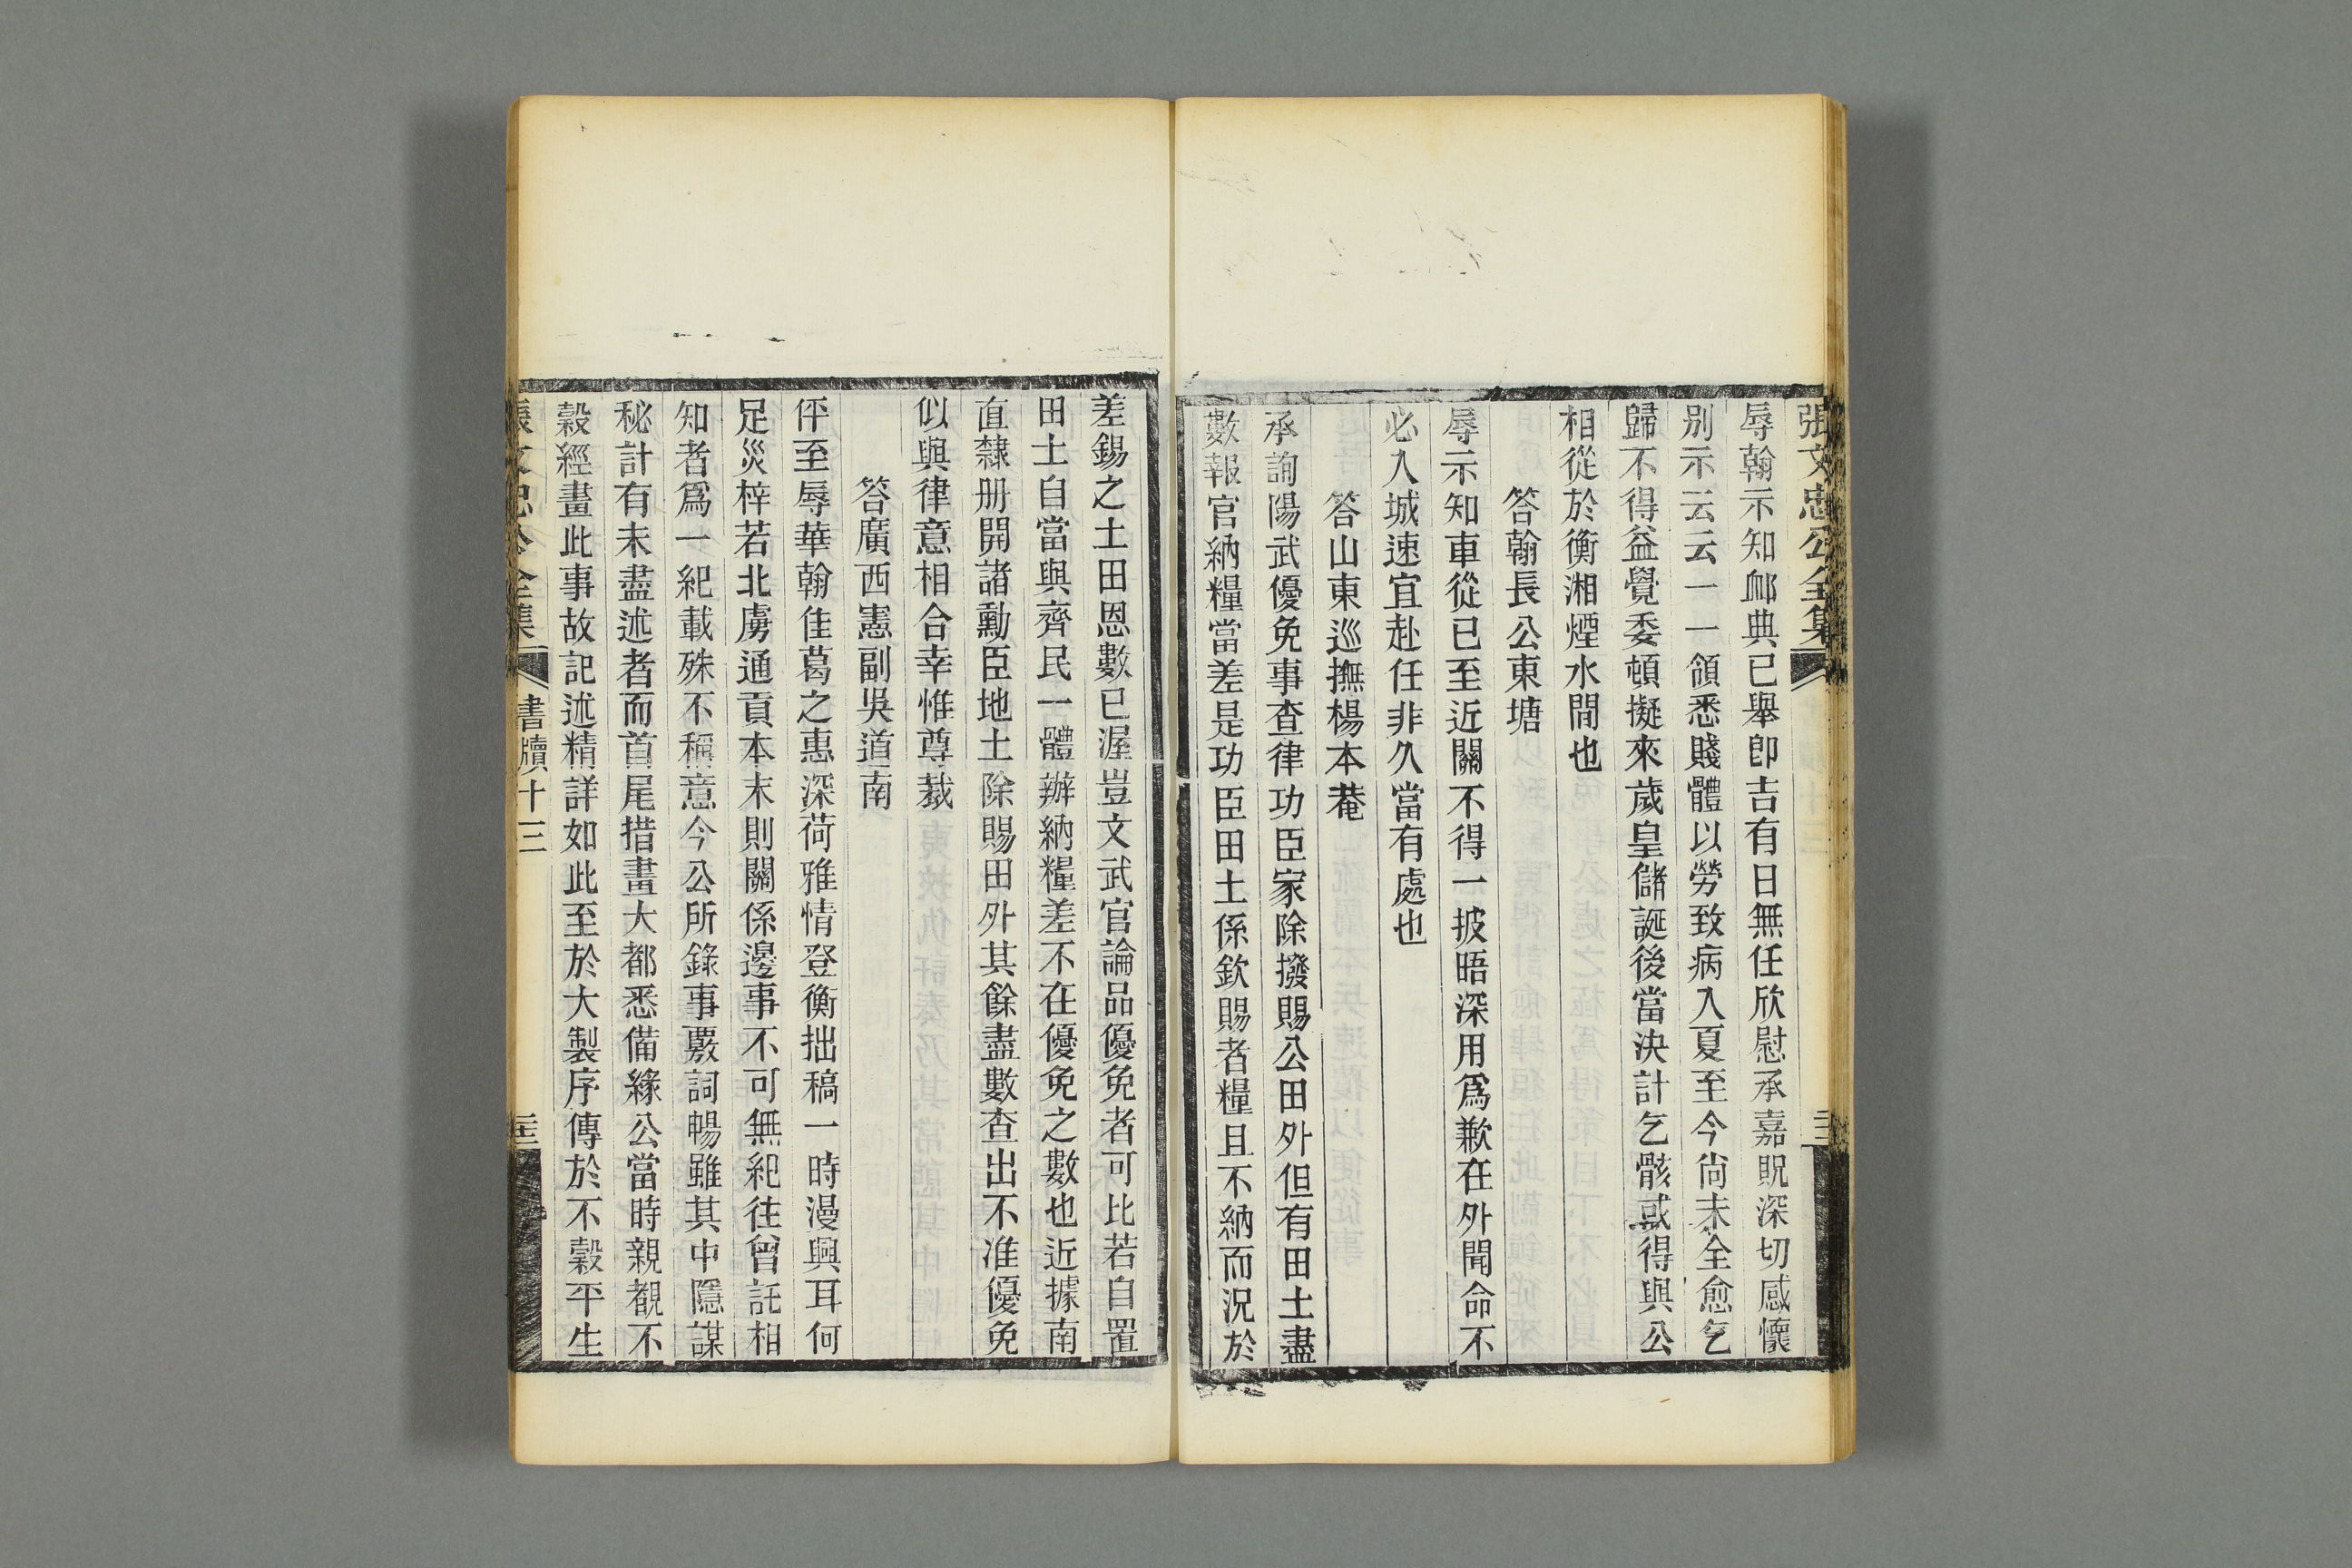 張文忠公全集
辱翰示知卹典已舉卽吉有日無任欣慰承嘉貺深切感懷
別示云云一一領悉賤體以勞致病入夏至今尚未全愈乞
歸不得益覺委頓擬來歲皇儲誕後當決計乞骸或得與公
相從於衡湘煙水間也
答翰長公東塘
辱示知車從已至近關不得一披晤深用爲歉在外聞命不
必入城速宜赴任非久當有處也
答山東巡撫楊本菴
承詢陽武優免事查律功臣家除撥賜公田外但有田土盡
數報官納糧當差是功臣田土係欽賜者糧且不納而況於
差錫之土田恩數已渥豈文武官論品優免者可比若自置
田土自當與齊民一體辦納糧差不在優免之數也近據南
直隸册開諸勳臣地土除賜田外其餘盡數查出不准優免
似與律意相合幸惟尊裁
答廣西憲副吳道南
伻至辱華翰佳葛之惠深荷雅情登衡拙稿一時漫興耳何
足災梓若北虜通貢本末則關係邊事不可無紀往曾託相
知者爲一紀載殊不稱意今公所錄事覈詞暢雖其中隱謀
秘計有未盡述者而首尾措畫大都悉備緣公當時親覩不
穀經畫此事故記述精詳如此至於大製序傳於不穀平生
張文忠公全集
書牘十三